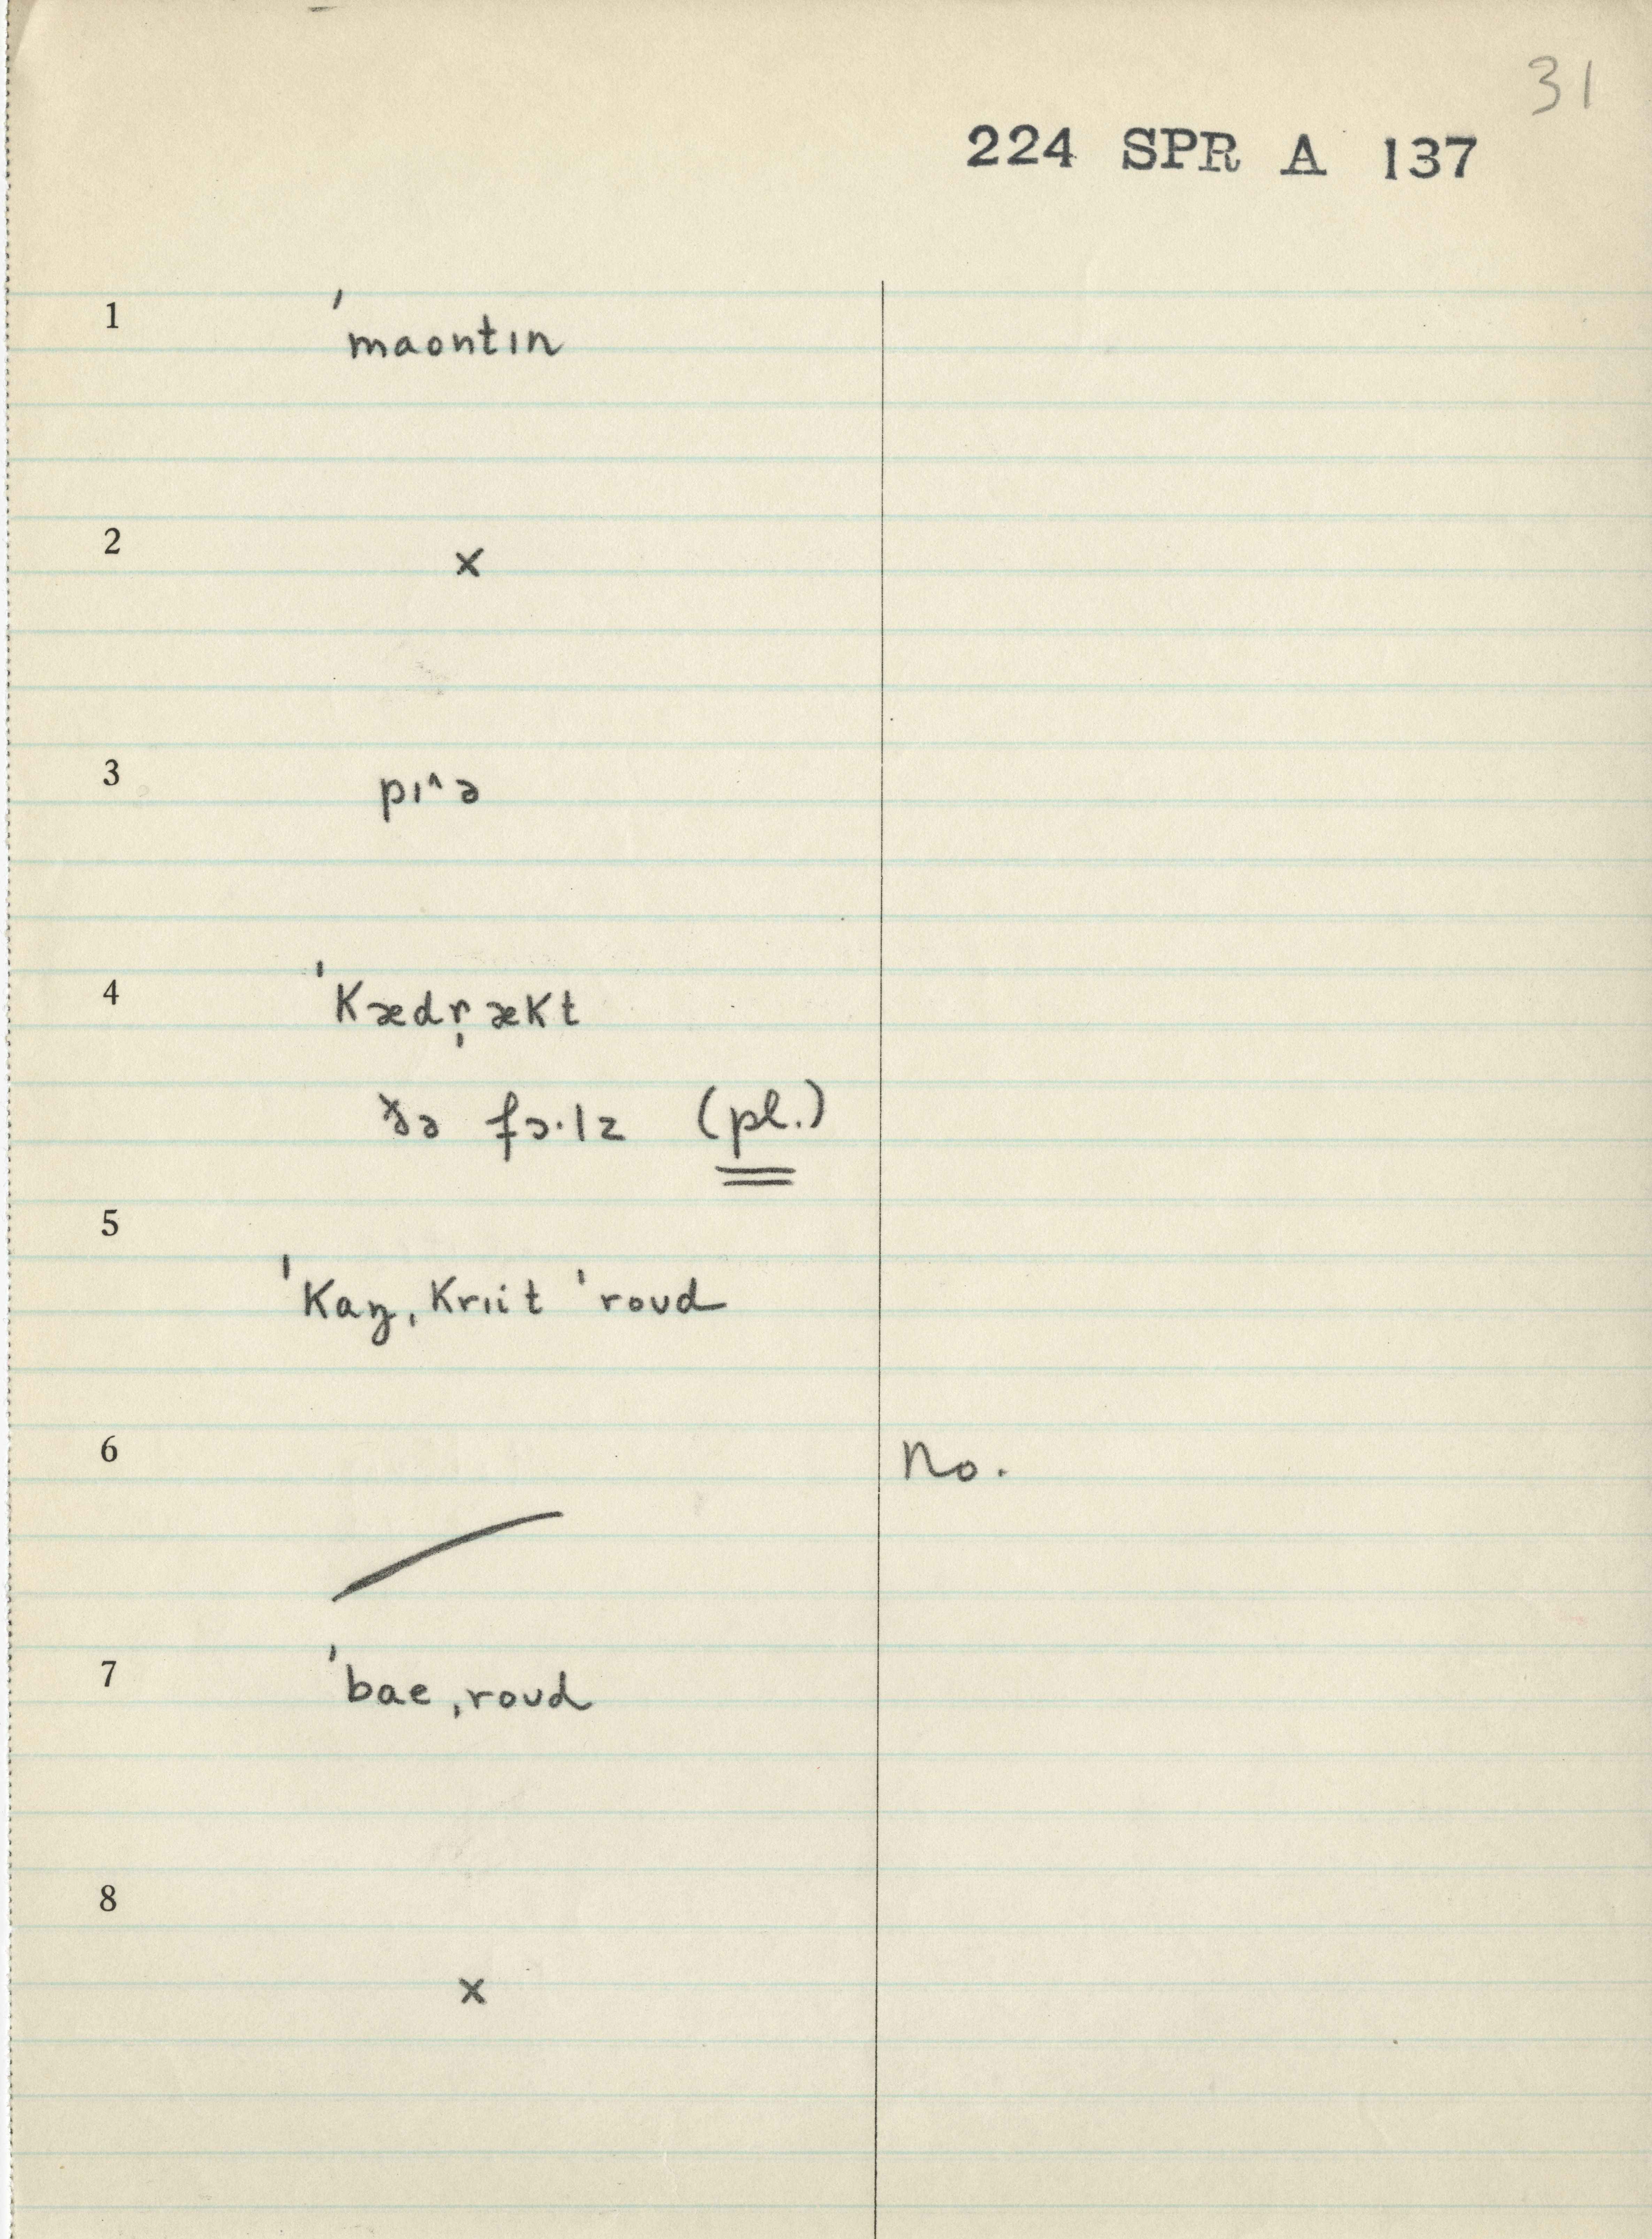 31
224 SPR A 137
1 ˈmaontɪn
2 ×
3 pɪ^ə
4 ˈkædr̩ækt
ðə fɔ·lz (pl.)
5 ˈkaŋˌkrɪit ˈroʊd
6 No.
7 ˈbaeˌroʊd
8 ×